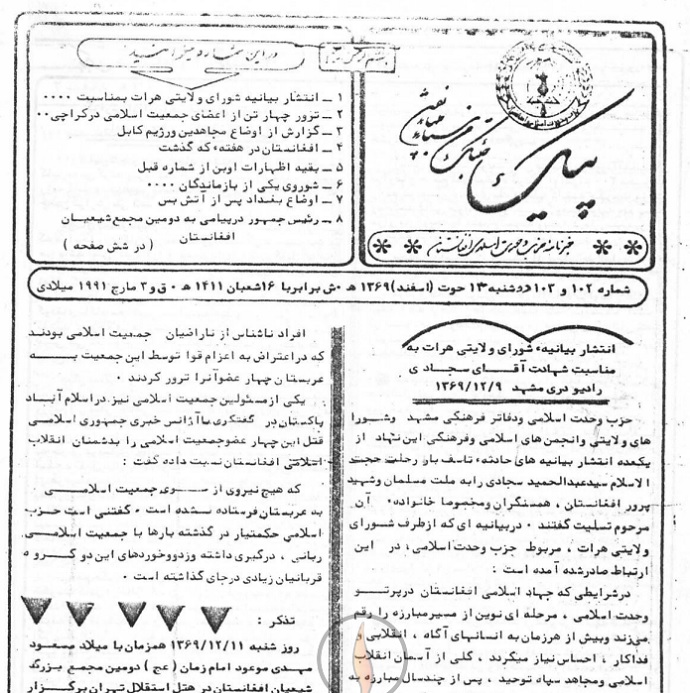 در این شماره میخوانید:
۱ ــ انتشار بیانیه شورای ولایتی هرات بمناسبت ۰۰۰۰
۲ ــ ترور چهار تن از اعضای جمعیت اسلامی درکراچی۰۰
۳ ــ گزارش از اوضاع مجاهدین ورژیم کابل
۴ ــ افغانستان در هفتهء که گذشت
۵ ــ بقیه اظهارات اوبن از شماره قبل
۶ ــ شوروی یکی از بازماندگان ۰۰۰۰
۷ ــ اوضاع بغداد پس از آتش بس
۸ ــ رئیس جمهور درپیامی به دومین مجمع شیعیان
افغانستان
( در شش صفحه )
پیک
خبرنامه حزب وحدت اسلامی افغانستان
شماره ۱۰۲ و ۱۰۳ دوشنبه ۱۳ حوت (اسفند) ۱۳۶۹ هـ ۰ش برابربا ۱۶شعبان ۱۴۱۱ هـ ۰ ق و ۳ مارچ ۱۹۹۱ میلادی
انتشار بیانیهء شورای ولایتی هرات به
مناسبت شهادت آقـای سجادی
رادیو دری مشهد ۱۳۶۹/۱۲/۹
حزب وحدت اسلامی ودفاتر فرهنگی مشهد وشورا
های ولایتی وانجمن های اسلامی وفرهنگی این نهاد از
یکعده انتشار بیانیه های حادثهء تاسف بار رحلت حجت
الاسلام سیدعبدالحمید سجادی رابه ملت مسلمان وشهید
پرور افغانستان ، همسنگران ومخصوصا خانوادهء آن
مرحوم تسلیت گفتند ۰ دربیانیه ای که ازطرف شورای
ولایتی هرات ، مربوط حزب وحدت اسلامی، در این
ارتباط صادرشده آمده است :
درشرایطی که جهاد اسلامی افغانستان درپرتـو
وحدت اسلامی ، مرحله ای نوین از مسیرمبارزه را رقم
میزند وبیش از هرزمان به انسانهای آگاه ، انقلابی و
فداکار ، احساس نیاز میگردد ، گلی از آسمان انقلاب
اسلامی ومجاهد سپاه توحید ، پس از چندسال مبارزه به
افراد ناشناس از ناراضیان جمعیت اسلامی بودند
که دراعتراض به اعزام قوا توسط این جمعیت بـه
عربستان چهار عضوآنرا ترور کردند ۰
یکی ازمسئولین جمعیت اسلامی نیز دراسلام آبـاد
پاکستان در گفتگوی باآژانس خبری جمهوری اسلامی
قتل این چهار عضوجمعیت اسلامی را بدشمنان انقلاب
اسلامی افغانستان نسبت داده گفت :
که هیچ نیروی از سـوی جمعیت اسلامـی
به عربستان فرستاده نشده است ۰ گفتنی است حزب
اسلامی حکمتیار در گذشته بارها با جمعیت اسلامـی
ربانی ، درگیری داشته وزدوخوردهای این دو گـروه
قربانیان زیادی درجای گذاشته است ۰
تذکر :
روز شنبه ۱۳۶۹/۱۲/۱۱ همزمان با میلاد مسعود
مهدی موعود امام زمان ( عج ) دومین مجمع بزرگ
شیعیان افغانستان در هتل استقلال تهران برگـزار